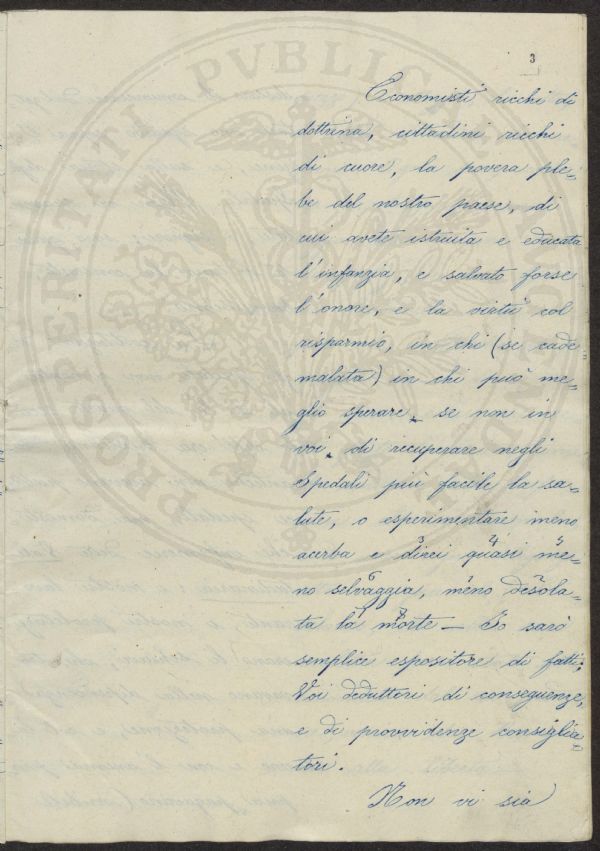 3
Economisti ricchi di
dottrina, cittadini ricchi
di cuore, la povera ple-
be del nostro paese, di
cui avete istruita e educata
l'infanzia, e salvato forse
l'onore, e la virtù col
risparmio, in chi (se cade
malata) in chi può me-
glio sperare, se non in
voi, di recuperare negli
Spedali più facile la sa-
lute, o esperimentare meno
acerba e direi quasi me-
no selvaggia, meno desola-
ta la morte — Io sarò
semplice espositore di fatti;
Voi deduttori di conseguenze,
e di provvidenze consiglia-
tori.
Non vi sia
PROSPERITATI PVBLICAE